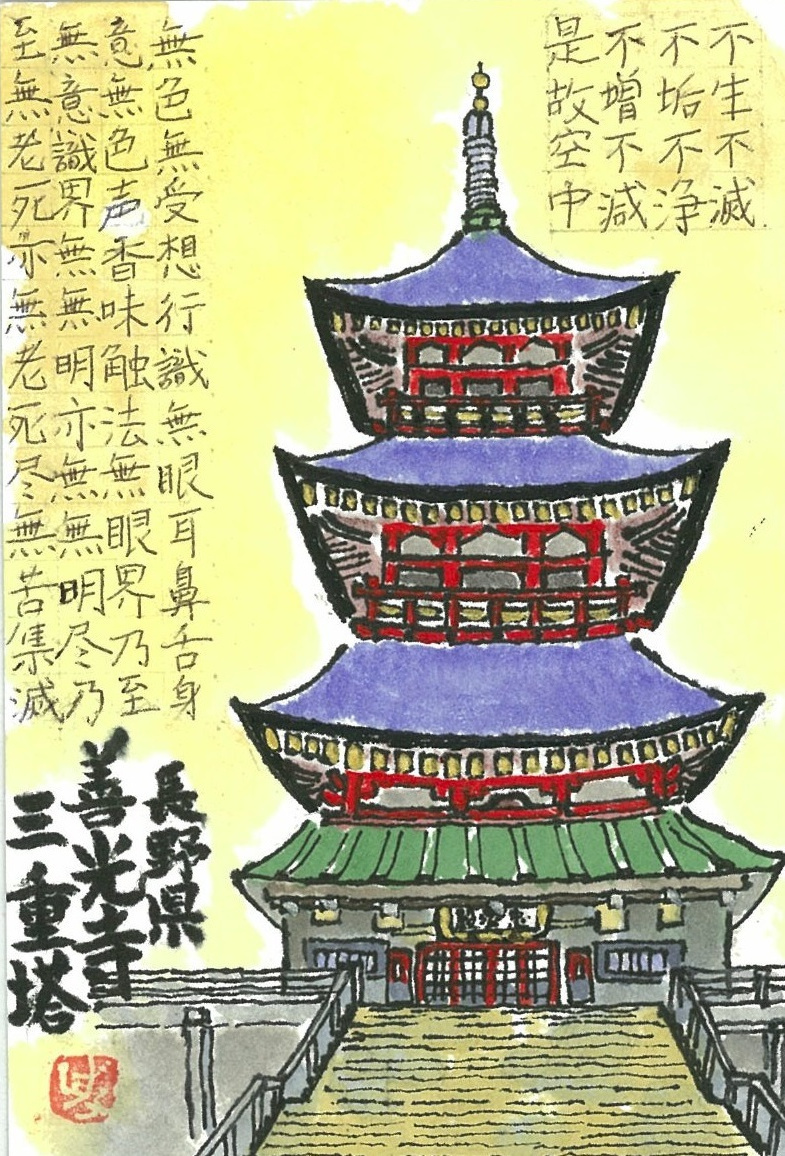 不生不滅
不垢不浄
不増不減
是故空中
無色無受想行識無眼耳鼻舌身
意無色声香味触法無眼界乃至
無意識界無無明亦無無明尽乃
至無老死亦無老死尽無苦集滅
長野県
善光寺
三重塔